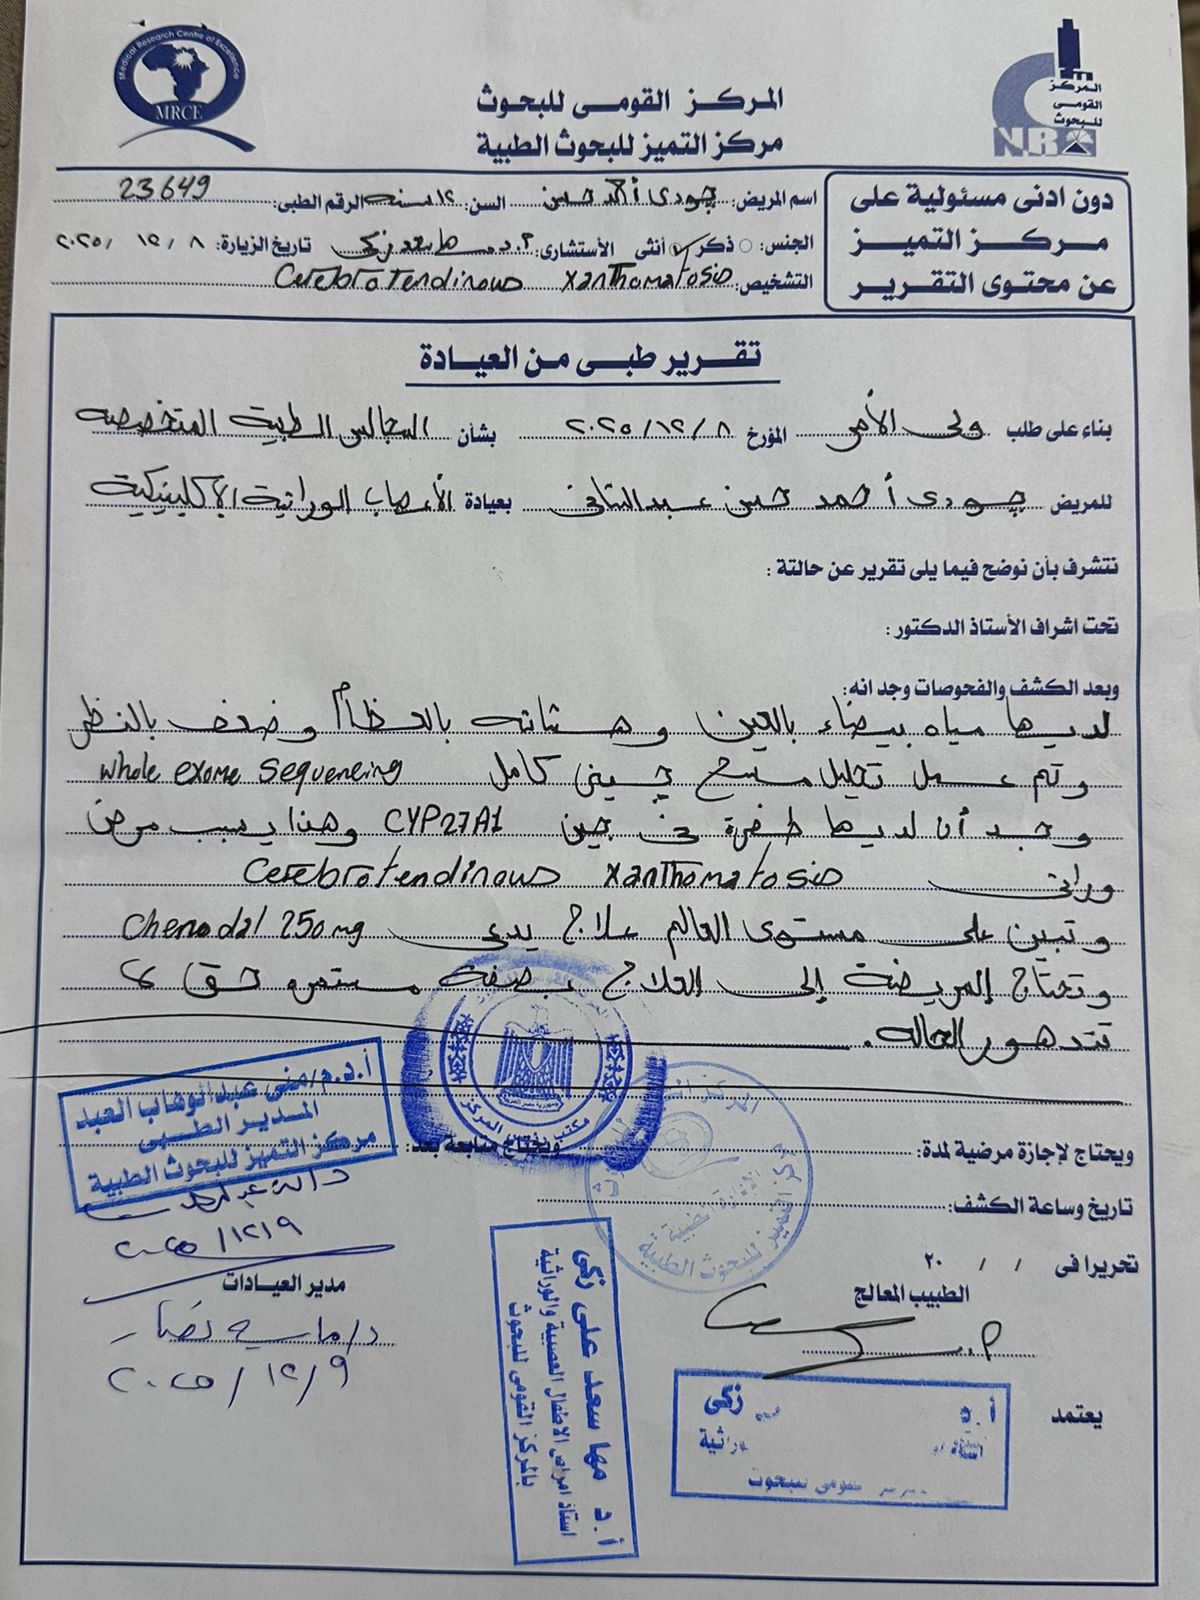 Medical Research Centre of Excellence
MRCE
المركز القومى للبحوث
مركز التميز للبحوث الطبية
المركز
القومى
للبحوث
NRC
دون ادنى مسئولية على
مركز التميز
عن محتوى التقرير
اسم المريض: جودى أحمد حسن السن: ١٢ سنه الرقم الطبى: 23649
الجنس: ذكر أنثى الأستشارى: أ.د. مها سعد زكى تاريخ الزيارة: ٨ / ١٢ / ٢٠٢٥
التشخيص: Cerebrotendinous xanthomatosis
تقرير طبى من العيادة
بناء على طلب ولى الأمر المؤرخ ٨ / ١٢ / ٢٠٢٥ بشأن المجالس الطبية المتخصصه
للمريض جودى أحمد حسن بعيادة الأعصاب الوراثية الإكلينيكية
نتشرف بأن نوضح فيما يلى تقرير عن حالتة :
تحت اشراف الأستاذ الدكتور :
وبعد الكشف والفحوصات وجد انه:
لديها مياه بيضاء بالعين وهشاشه بالعظام وضعف بالنظر
وتم عمل تحليل مسح جينى كامل whole exome sequencing
وجد أن لديها طفرة فى جين CYP27A1 وهذا يسبب مرض
وراثى Cerebrotendinous xanthomatosis
وتبين على مستوى العالم علاج يدعى Chenodal 250mg
وتحتاج المريضة إلى العلاج بصفه مستمره حتى لا
تتدهور الحاله.
أ.د.م/منى عبدالوهاب العبد
المدير الطبى
مركز التميز للبحوث الطبية
ويحتاج لإجازة مرضية لمدة: ويحتاج متابعة بعد:
٢٠٢٥/١٢/٩
تاريخ وساعة الكشف:
تحريرا فى / / ٢٠
الطبيب المعالج
مدير العيادات
٢٠٢٥/١٢/٩
أ.د مها سعد على زكى
استاذ امراض الاطفال العصبية والوراثية
بالمركز القومى للبحوث
يعتمد
أ.د زكى